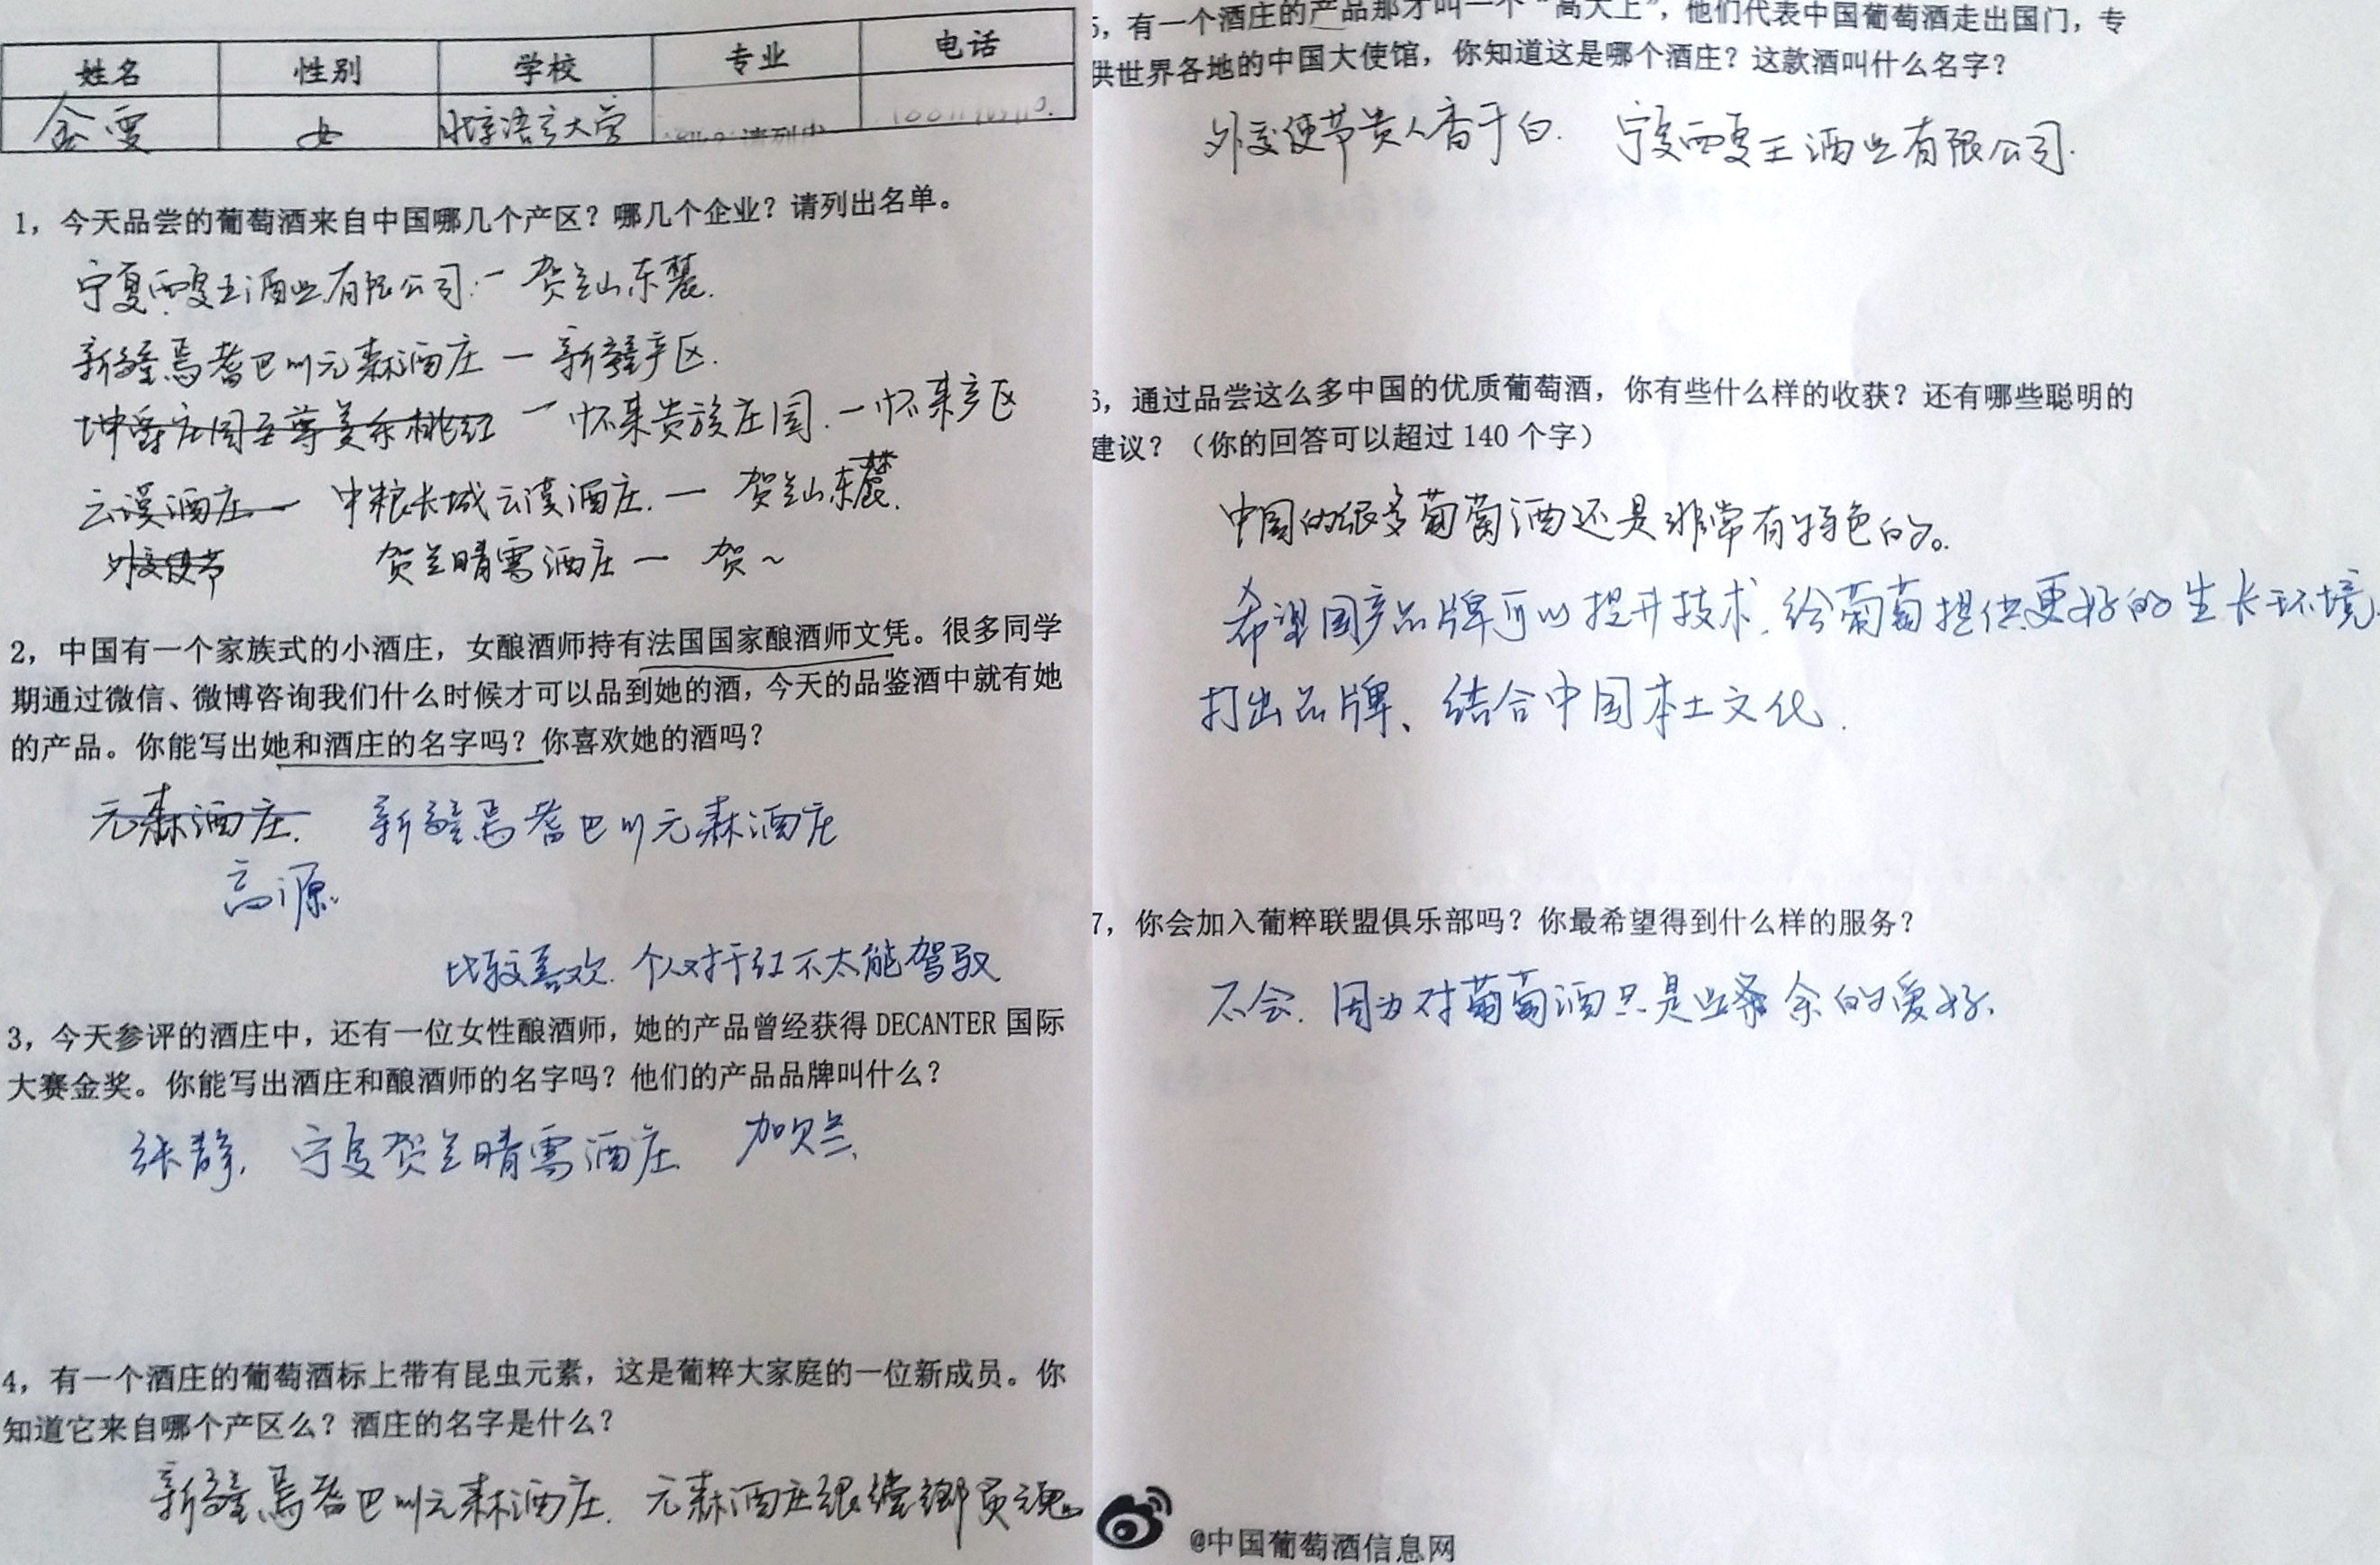 姓名 性别 学校 专业 电话
金雯 女 北京语言大学
1，今天品尝的葡萄酒来自中国哪几个产区？哪几个企业？请列出名单。
宁夏西夏王酒业有限公司 — 贺兰山东麓.
新疆焉耆巴州元森酒庄 — 新疆产区.
坤爵庄园至尊美乐桃红 — 怀来贵族庄园. — 怀来产区
云漠酒庄 — 中粮长城云漠酒庄. — 贺兰山东麓.
外交使节 贺兰晴雪酒庄 — 贺~
2，中国有一个家族式的小酒庄，女酿酒师持有法国国家酿酒师文凭。很多同学
期通过微信、微博咨询我们什么时候才可以品到她的酒，今天的品鉴酒中就有她
的产品。你能写出她和酒庄的名字吗？你喜欢她的酒吗？
元森酒庄. 新疆焉耆巴州元森酒庄
高源.
比较喜欢. 个人对干红不太能驾驭
3，今天参评的酒庄中，还有一位女性酿酒师，她的产品曾经获得 DECANTER 国际
大赛金奖。你能写出酒庄和酿酒师的名字吗？他们的产品品牌叫什么？
张静. 宁夏贺兰晴雪酒庄. 加贝兰.
4，有一个酒庄的葡萄酒标上带有昆虫元素，这是葡粹大家庭的一位新成员。你
知道它来自哪个产区么？酒庄的名字是什么？
新疆焉耆巴州元森酒庄. 元森酒庄
5，有一个酒庄的产品那才叫一个“高大上”，他们代表中国葡萄酒走出国门，专
供世界各地的中国大使馆，你知道这是哪个酒庄？这款酒叫什么名字？
外交使节贵人香干白. 宁夏西夏王酒业有限公司.
6，通过品尝这么多中国的优质葡萄酒，你有些什么样的收获？还有哪些聪明的
建议？（你的回答可以超过 140 个字）
中国的很多葡萄酒还是非常有特色的。
希望国产品牌可以提升技术，给葡萄提供更好的生长环境.
打出品牌、结合中国本土文化.
7，你会加入葡粹联盟俱乐部吗？你最希望得到什么样的服务？
不会. 因为对葡萄酒只是业余的爱好.
@中国葡萄酒信息网